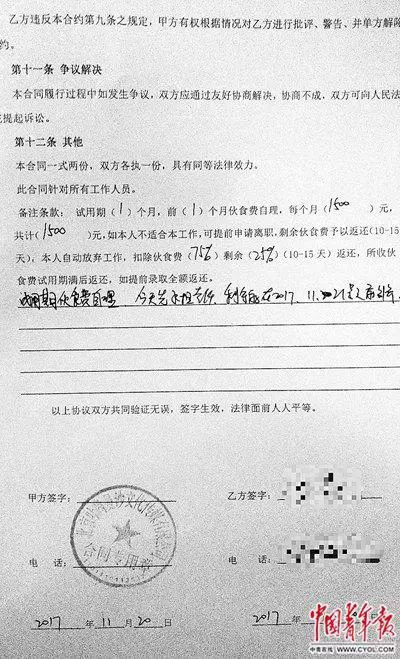 乙方违反本合约第九条之规定，甲方有权根据情况对乙方进行批评、警告、并单方解除
约。
第十一条 争议解决
本合同履行过程中如发生争议，双方应通过友好协商解决，协商不成，双方可向人民法
提起诉讼。
第十二条 其他
本合同一式两份，双方各执一份，具有同等法律效力。
此合同针对所有工作人员。
备注条款：试用期（1）个月，前（1）个月伙食费自理，每个月（1500）元，
共计（1500）元，如本人不适合本工作，可提前申请离职，剩余伙食费予以返还（10-15
天），本人自动放弃工作，扣除伙食费（75%）剩余（25%）（10-15天）返还，所收伙
食费试用期满后返还，如提前录取全额返还。
试用期伙食费自理 今天先 在2017.11.21
以上协议双方共同验证无误，签字生效，法律面前人人平等。
甲方签字： 乙方签字：
合同专用章
电 话： 电 话：
2017 年 11 月 20 日 2017 20 日
中国青年报
中青在线 WWW.CYOL.COM